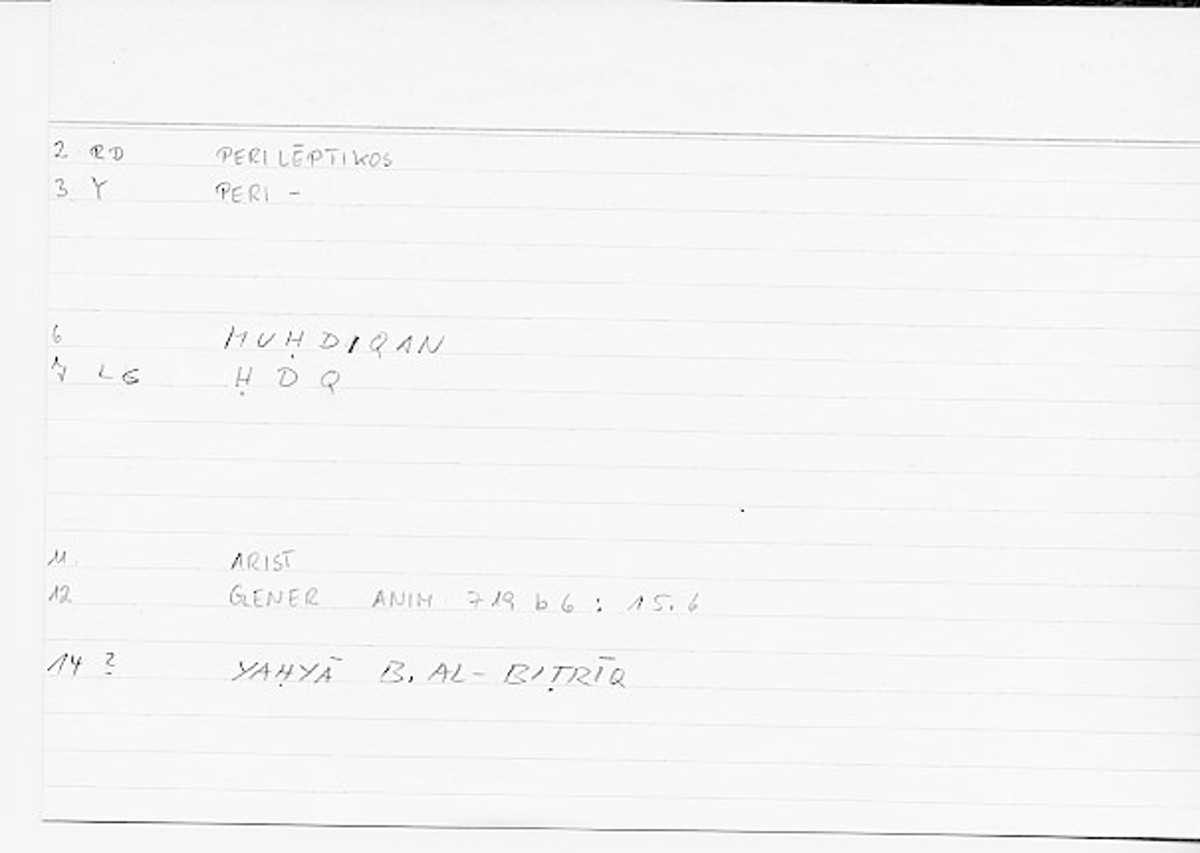 2 RD PERILĒPTIKOS
3 Y PERI -
6 MUḤDIQAN
7 LG ḤDQ
11 ARIST
12 GENER ANIM 719 b 6 : 15.6
14 ? YAḤYĀ B. AL-BIṬRĪQ